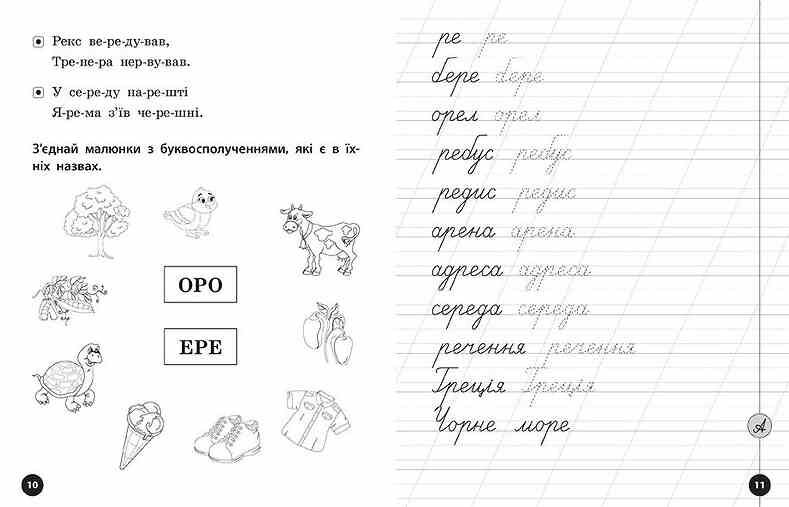 Рекс ве-ре-ду-вав,
Тре-не-ра нер-ву-вав.
У се-ре-ду на-ре-шті
Я-ре-ма з’їв че-ре-шні.
З’єднай малюнки з буквосполученнями, які є в їх-
ніх назвах.
ОРО
ЕРЕ
10
ре ре
бере бере
орел орел
ребус ребус
редис редис
арена арена
адреса адреса
середа середа
речення речення
Греція Греція
Чорне море
А
11